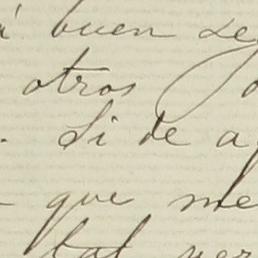 á buen
otros
Si de a
que me
tal